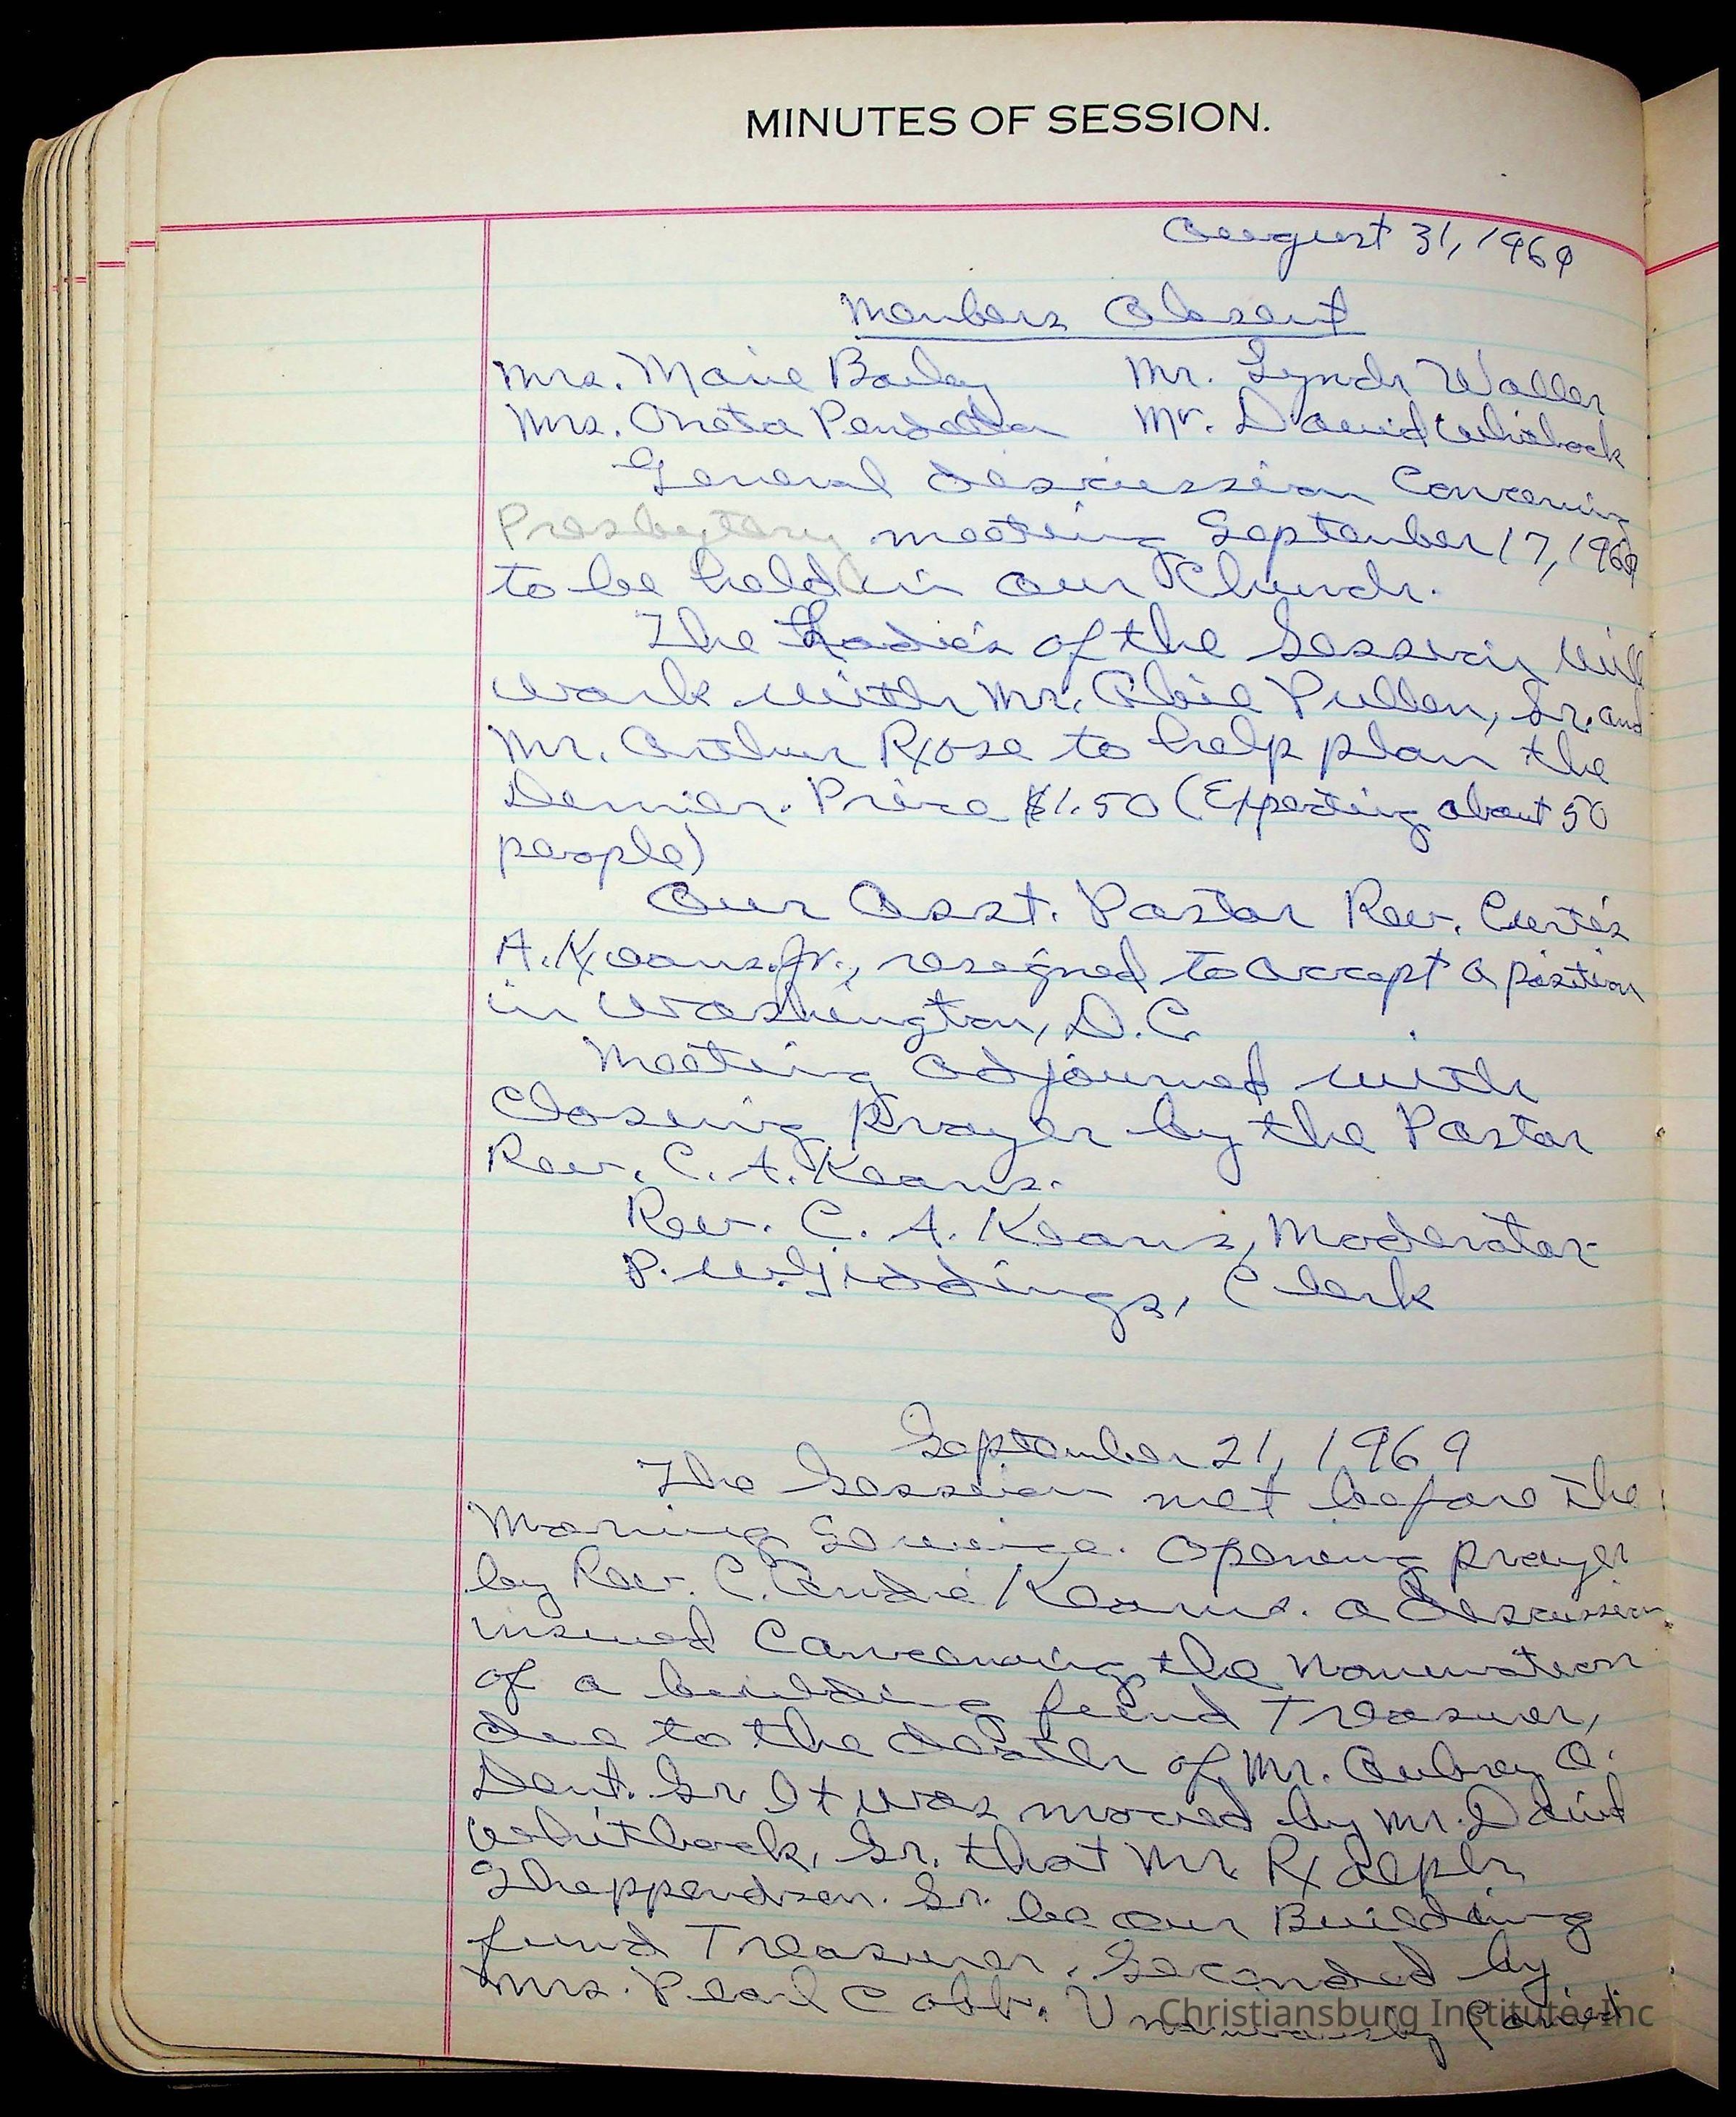 MINUTES OF SESSION.
August 31, 1969
Members Absent
Mrs. Marie Bailey Mr. Lynch Waller
Mrs. Oneta Pendleton Mr. David Whitlock
General discussion Concerning
Presbytery meeting September 17, 1969
to be held in our Church.
The Ladies of the Session will
work with Mr. Abie Pullen, Sr. and
Mr. Arthur Rose to help plan the
Dinner. Price $1.50 (Expecting about 50
people)
Our Asst. Pastor Rev. Curtis
A. Kearns, Jr., resigned to accept a position
in Washington, D.C.
Meeting adjourned with
Closing Prayer by the Pastor
Rev. C. A. Kearns.
Rev. C. A. Kearns, Moderator
P. W. Giddings, Clerk
September 21, 1969
The Session met before the
Morning Service. Opening prayer
by Rev. C. Andre Kearns. a discussion
insued Concerning the nomination
of a building fund Treasurer,
due to the death of Mr. Aubrey O.
Dent. Sr. It was moved by Mr. David
Whitlock, Sr. that Mr. Ralph
Sheppardson. Sr. be our Building
fund Treasurer, Seconded by
Mrs. Pearl Cobb. Unanimously Carried
Christiansburg Institute, Inc